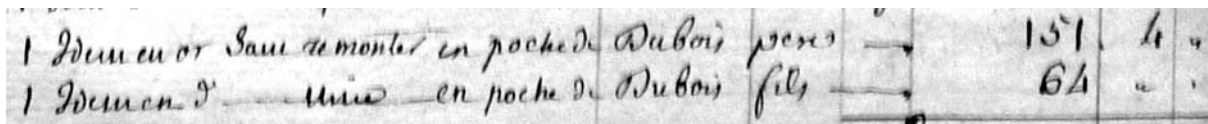 1 Idem en or Sans remonter en poche de Dubois pere 151. 4 "
1 Idem en d° unie en poche de Dubois fils 64 " "